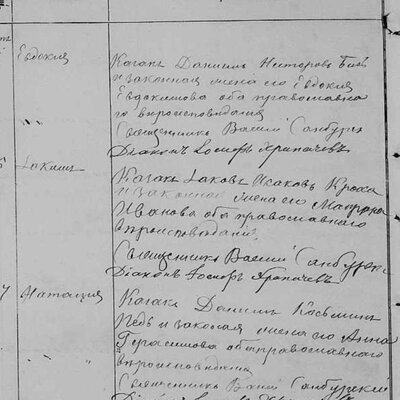 Евдокия
Казакъ Даниилъ Несторовъ
и законная жена его Евдокия
Евдокимова оба православна
го вѣроисповѣдания
Священникъ Василий Санбурск
Дiаконъ Iосифъ
Казакъ Iаковъ Исаковъ Кроха
и законная жена его Матрона
Иванова оба православнаго
вѣроисповѣдания
Священникъ Василий Санбурск
Дiаконъ Iосифъ
7 Наталия
Казакъ Даниилъ Косьминъ
и законая жена его Анна
Герасимова оба православнаго
вѣроисповѣдания
Священникъ Василий Санбурский